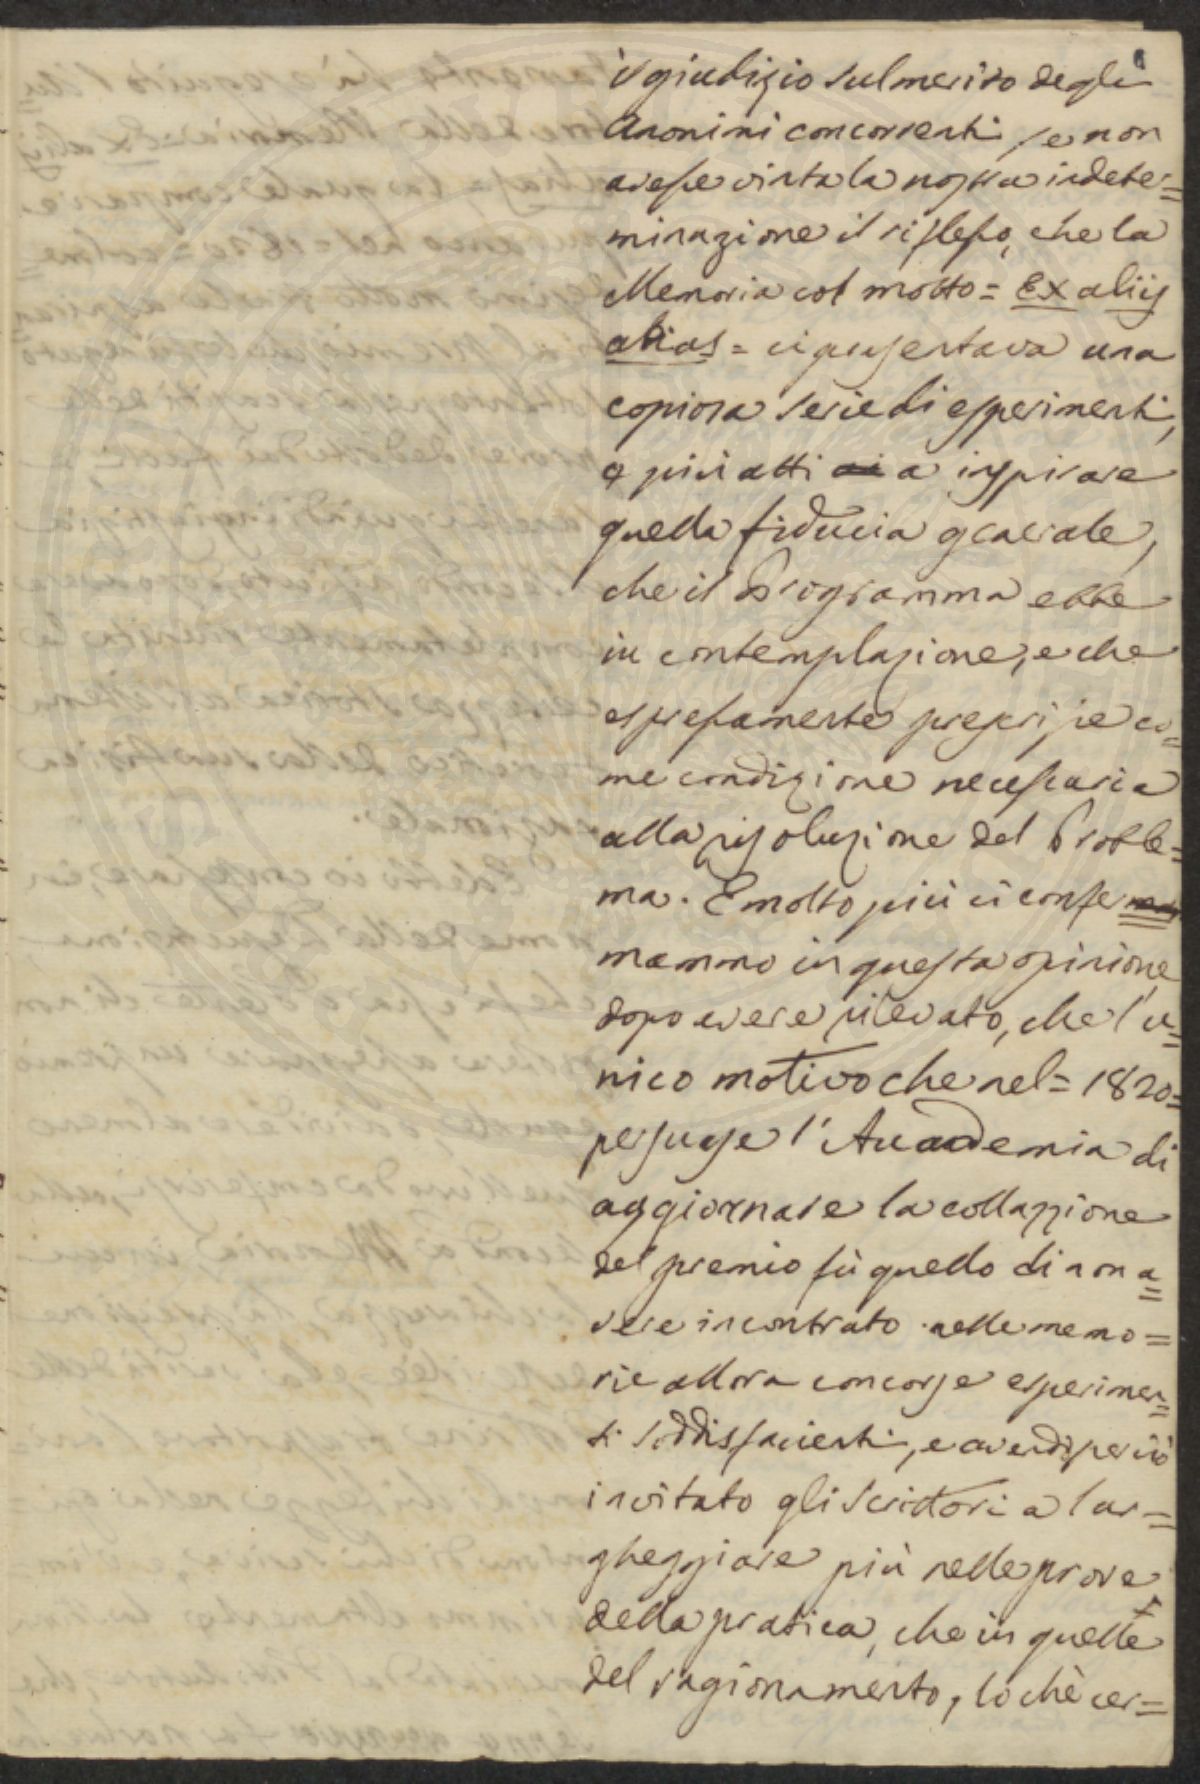 il giudizio sul merito degli
Anonimi concorrenti, se non
avesse vinta la nostra indeter=
minazione il riflesso, che la
Memoria col motto = Ex aliis
alias = ci presentava una
copiosa serie di esperimenti,
e più atti a inspirare
quella fiducia generale,
che il Programma ebbe
in contemplazione, e che
espressamente prescrisse co=
me condizione necessaria
alla risoluzione del Proble=
ma. E molto più ci confer
mammo in questa opinione
dopo avere rilevato, che l'u=
nico motivo che nel = 1820 =
persuase l'Accademia di
aggiornare la collazione
del premio fù quello di non a=
vere incontrato nelle memo=
rie allora concorse esperimen=
ti soddisfacienti, e avendo perciò
invitato gli Scrittori a lar=
gheggiare più nelle prove
della pratica, che in quelle
del ragionamento, lo chè cer=